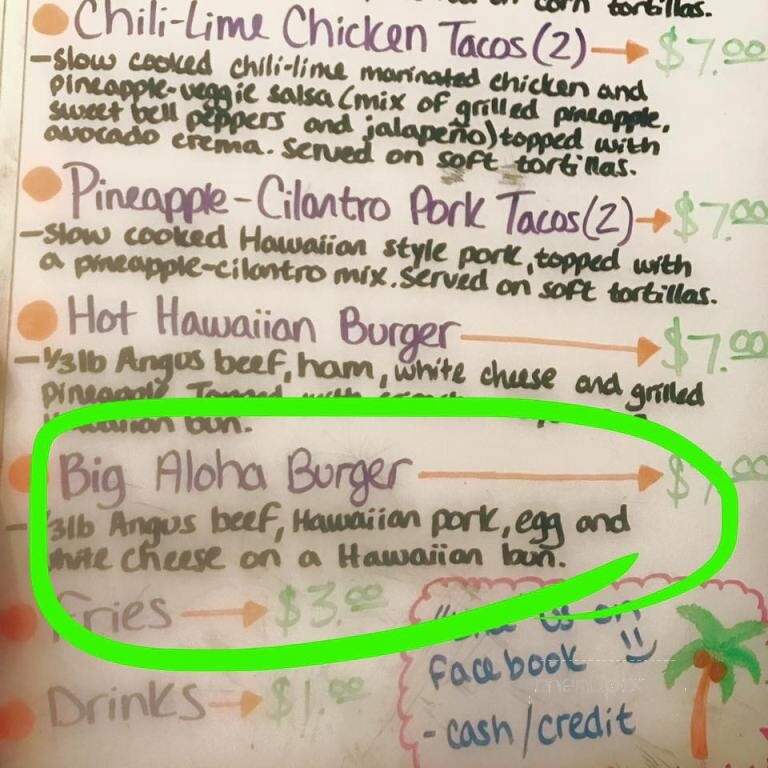 corn tortillas.
Chili-Lime Chicken Tacos (2) → $7.00
- Slow cooked chili-lime marinated chicken and
pineapple-veggie salsa (mix of grilled pineapple,
sweet bell peppers and jalapeño) topped with
avocado crema. Served on soft tortillas.
Pineapple-Cilantro Pork Tacos (2) → $7.00
- Slow cooked Hawaiian style pork, topped with
a pineapple-cilantro mix. Served on soft tortillas.
Hot Hawaiian Burger → $7.00
- 1/3 lb Angus beef, ham, white cheese and grilled
pineapple. Topped with
Hawaiian bun.
Big Aloha Burger → $7.00
- 1/3 lb Angus beef, Hawaiian pork, egg and
white cheese on a Hawaiian bun.
Fries → $3.00
us on
Facebook
Drinks → $1.00
- cash/credit